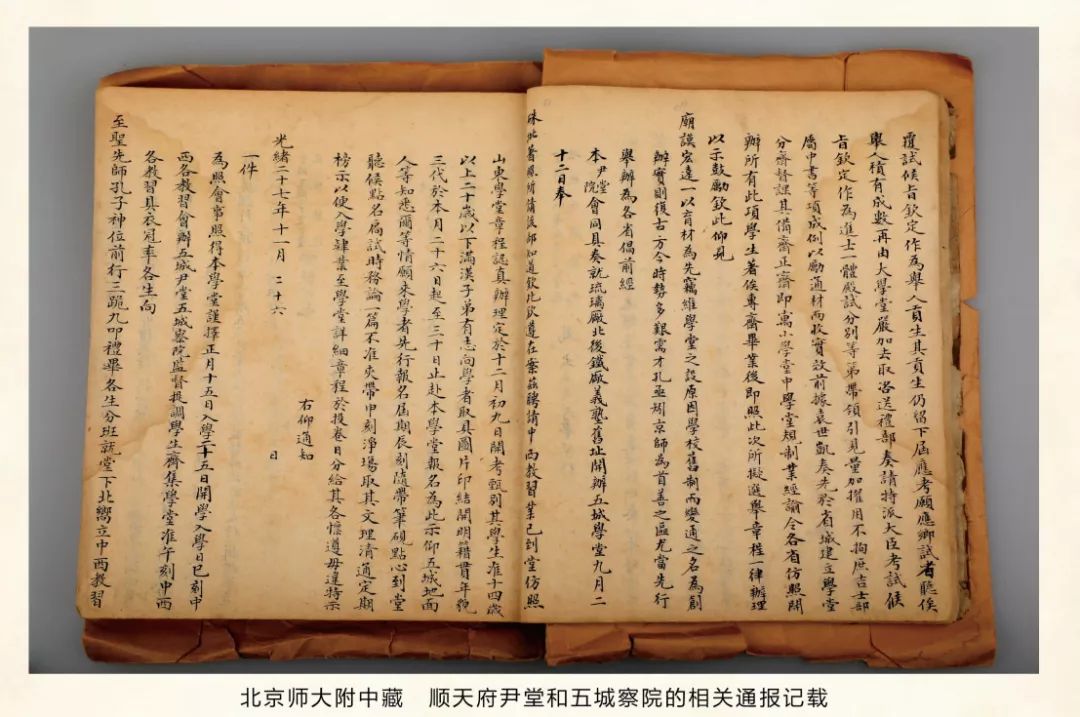 覆試候旨欽定作為舉人貢生其貢生仍留下屆應考願應鄉試者聽俟
舉人積有成數再由大學堂嚴加去取咨送禮部奏請特派大臣考試候
旨欽定作為進士一體殿試分別等第帶領引見量加擢用不拘庶吉士部
屬中書等項成例以勵通材而收實效前據袁世凱奏先於省城建立學堂
分齋督課其備齋正齋即寓小學堂中學堂規制業經諭令各省仿照開
辦所有此項學生著俟專齋畢業後即照此次所擬選舉章程一律辦理
以示鼓勵欽此仰見
廟謨宏達一以育材為先竊維學堂之設原因學校舊制而變通之名為創
辦實則復古方今時勢多艱需才孔亟矧京師為首善之區尤當先行
舉辦為各省倡前經
本尹堂院會同具奏就琉璃廠北後鐵廠義塾舊址開辦五城學堂九月二
十二日奉
硃批著該知道欽此欽遵在案茲聘請中西教習業已到堂仿照
山東學堂章程認真辦理定於十二月初九日開考甄別其學生准十四歲
以上二十歲以下滿漢子弟有志向學者取具圖片印結開明籍貫年貌
三代於本月二十六日起至三十日止赴本學堂報名為此示仰五城地面
人等知悉爾等情願來學者先行報名屆期辰刻隨帶筆硯點心到堂
聽候點名扃試時務論一篇不准夾帶申刻淨場取其文理清通定期
榜示以便入學肄業至學堂詳細章程於投卷日分給其各懍遵毋違特示
右仰通知
光緒二十七年十一月 二十六 日
一件
為照會事照得本學堂謹擇正月十五日入學二十五日開學入學日巳刻中
西各教習會辦五城尹堂五城察院監督提調學生齊集學堂准午刻中西
各教習具衣冠率各生向
至聖先師孔子神位前行三跪九叩禮畢各生分班就堂下北嚮立中西教習
北京师大附中藏 顺天府尹堂和五城察院的相关通报记载